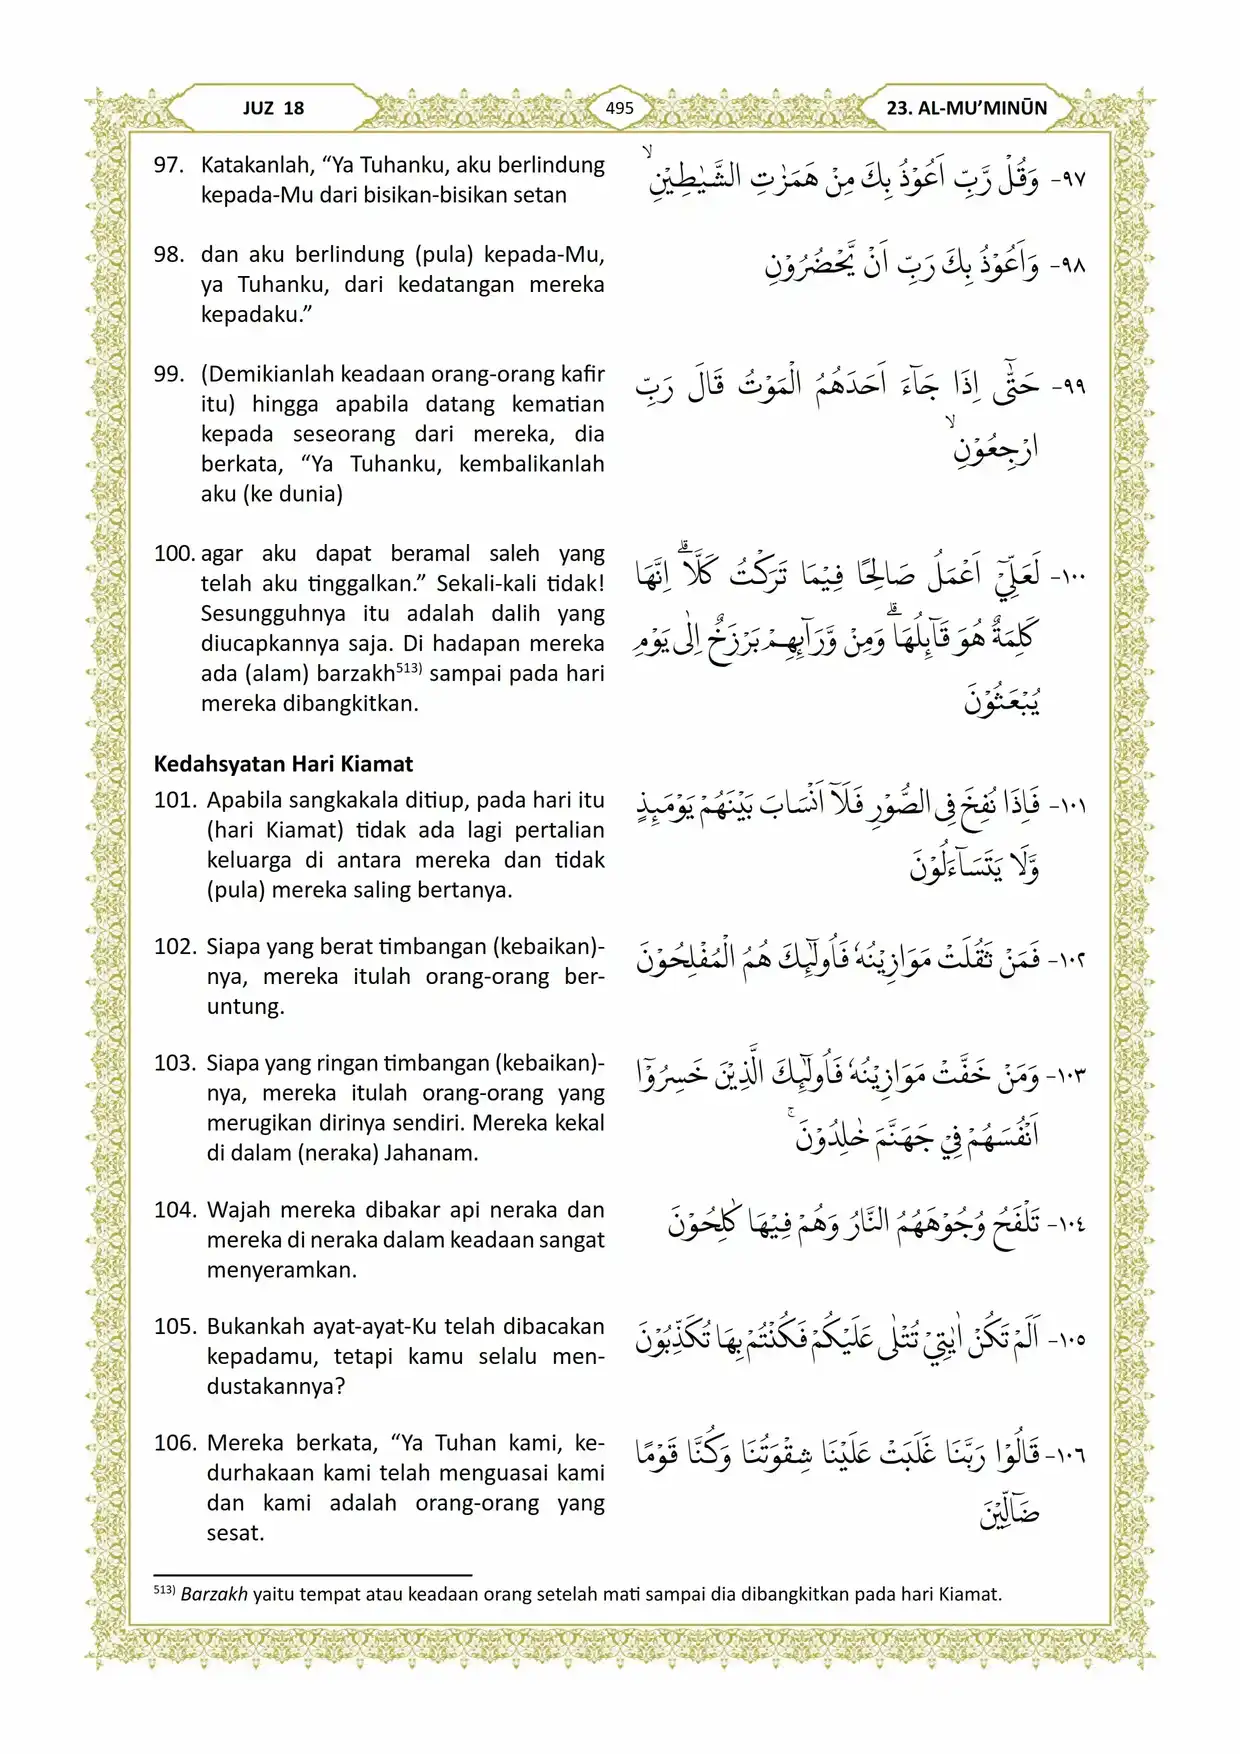 JUZ 18
495
23. AL-MU’MINŪN
97. Katakanlah, “Ya Tuhanku, aku berlindung
kepada-Mu dari bisikan-bisikan setan
٩٧- وَقُلْ رَّبِّ اَعُوْذُ بِكَ مِنْ هَمَزٰتِ الشَّيٰطِيْنِ ۙ
98. dan aku berlindung (pula) kepada-Mu,
ya Tuhanku, dari kedatangan mereka
kepadaku.”
٩٨- وَاَعُوْذُ بِكَ رَبِّ اَنْ يَّحْضُرُوْنِ
99. (Demikianlah keadaan orang-orang kafir
itu) hingga apabila datang kematian
kepada seseorang dari mereka, dia
berkata, “Ya Tuhanku, kembalikanlah
aku (ke dunia)
٩٩- حَتّٰٓى اِذَا جَاۤءَ اَحَدَهُمُ الْمَوْتُ قَالَ رَبِّ
ارْجِعُوْنِ ۙ
100. agar aku dapat beramal saleh yang
telah aku tinggalkan.” Sekali-kali tidak!
Sesungguhnya itu adalah dalih yang
diucapkannya saja. Di hadapan mereka
ada (alam) barzakh513) sampai pada hari
mereka dibangkitkan.
١٠٠- لَعَلِّيْٓ اَعْمَلُ صَالِحًا فِيْمَا تَرَكْتُ كَلَّاۗ اِنَّهَا
كَلِمَةٌ هُوَ قَاۤىِٕلُهَاۗ وَمِنْ وَّرَاۤىِٕهِمْ بَرْزَخٌ اِلٰى يَوْمِ
يُبْعَثُوْنَ
Kedahsyatan Hari Kiamat
101. Apabila sangkakala ditiup, pada hari itu
(hari Kiamat) tidak ada lagi pertalian
keluarga di antara mereka dan tidak
(pula) mereka saling bertanya.
١٠١- فَاِذَا نُفِخَ فِى الصُّوْرِ فَلَآ اَنْسَابَ بَيْنَهُمْ يَوْمَىِٕذٍ
وَّلَا يَتَسَاۤءَلُوْنَ
102. Siapa yang berat timbangan (kebaikan)-
nya, mereka itulah orang-orang ber-
untung.
١٠٢- فَمَنْ ثَقُلَتْ مَوَازِيْنُهٗ فَاُولٰۤىِٕكَ هُمُ الْمُفْلِحُوْنَ
103. Siapa yang ringan timbangan (kebaikan)-
nya, mereka itulah orang-orang yang
merugikan dirinya sendiri. Mereka kekal
di dalam (neraka) Jahanam.
١٠٣- وَمَنْ خَفَّتْ مَوَازِيْنُهٗ فَاُولٰۤىِٕكَ الَّذِيْنَ خَسِرُوْٓا
اَنْفُسَهُمْ فِيْ جَهَنَّمَ خٰلِدُوْنَ ۚ
104. Wajah mereka dibakar api neraka dan
mereka di neraka dalam keadaan sangat
menyeramkan.
١٠٤- تَلْفَحُ وُجُوْهَهُمُ النَّارُ وَهُمْ فِيْهَا كٰلِحُوْنَ
105. Bukankah ayat-ayat-Ku telah dibacakan
kepadamu, tetapi kamu selalu men-
dustakannya?
١٠٥- اَلَمْ تَكُنْ اٰيٰتِيْ تُتْلٰى عَلَيْكُمْ فَكُنْتُمْ بِهَا تُكَذِّبُوْنَ
106. Mereka berkata, “Ya Tuhan kami, ke-
durhakaan kami telah menguasai kami
dan kami adalah orang-orang yang
sesat.
١٠٦- قَالُوْا رَبَّنَا غَلَبَتْ عَلَيْنَا شِقْوَتُنَا وَكُنَّا قَوْمًا
ضَاۤلِّيْنَ
513) Barzakh yaitu tempat atau keadaan orang setelah mati sampai dia dibangkitkan pada hari Kiamat.